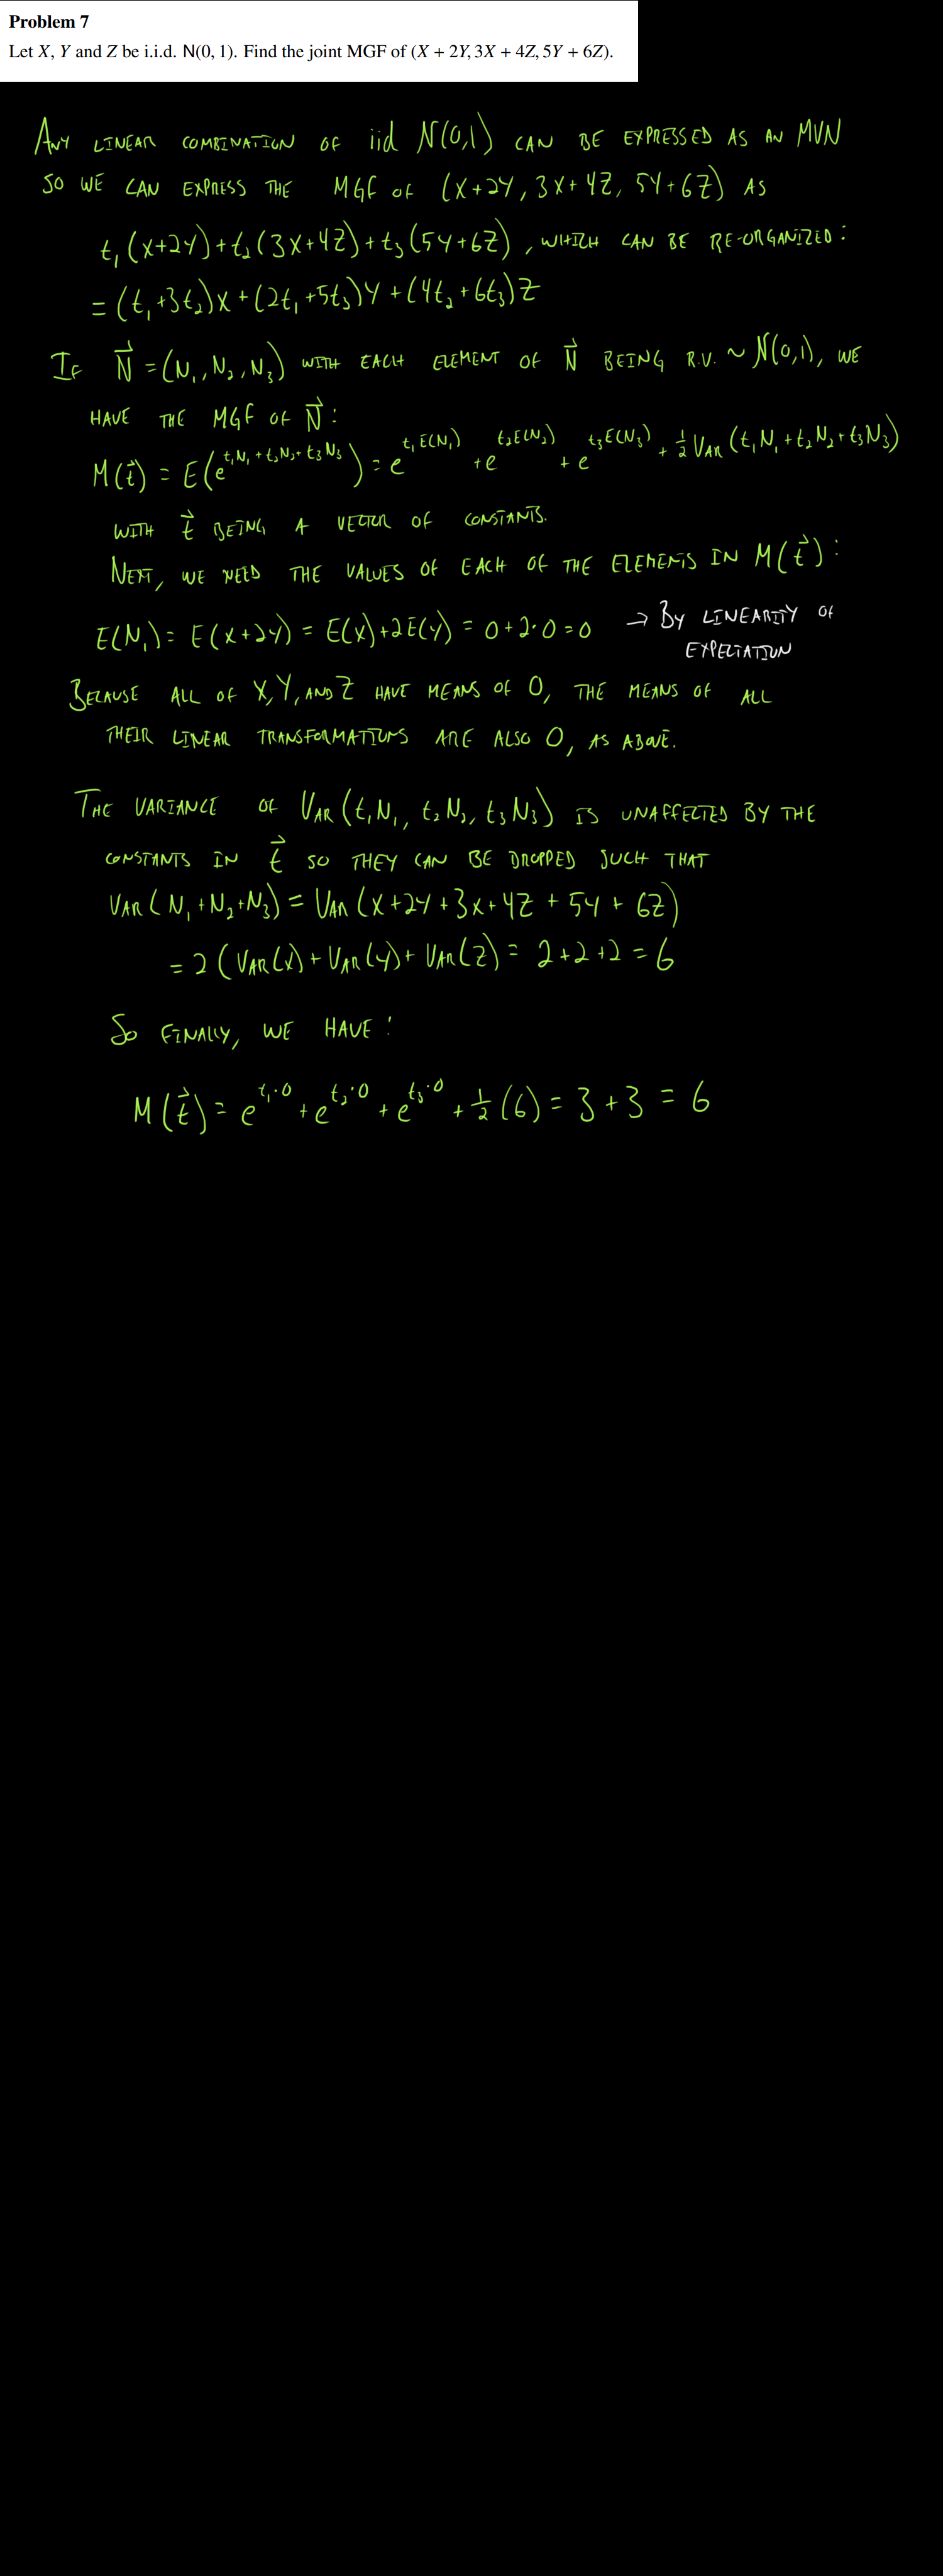 Problem 7
Let X, Y and Z be i.i.d. N(0, 1). Find the joint MGF of (X + 2Y, 3X + 4Z, 5Y + 6Z).
ANY LINEAR COMBINATION OF iid N(0,1) CAN BE EXPRESSED AS AN MVN
SO WE CAN EXPRESS THE MGF OF (X+2Y, 3X+4Z, 5Y+6Z) AS
t₁(X+2Y)+t₂(3X+4Z)+t₃(5Y+6Z), WHICH CAN BE RE-ORGANIZED:
=(t₁+3t₂)X+(2t₁+5t₃)Y+(4t₂+6t₃)Z
IF N⃗ =(N₁,N₂,N₃) WITH EACH ELEMENT OF N⃗ BEING R.V. ~ N(0,1), WE
HAVE THE MGF OF N⃗:
M(t⃗) = E(e^{t₁N₁+t₂N₂+t₃N₃}) = e^{t₁E(N₁)} + e^{t₂E(N₂)} + e^{t₃E(N₃)} + ½ VAR(t₁N₁+t₂N₂+t₃N₃)
WITH t⃗ BEING A VECTOR OF CONSTANTS.
NEXT, WE NEED THE VALUES OF EACH OF THE ELEMENTS IN M(t⃗):
E(N₁)= E(X+2Y) = E(X)+2E(Y) = 0+2·0=0 → BY LINEARITY OF
EXPECTATION
BECAUSE ALL OF X,Y, AND Z HAVE MEANS OF 0, THE MEANS OF ALL
THEIR LINEAR TRANSFORMATIONS ARE ALSO 0, AS ABOVE.
THE VARIANCE OF VAR(t₁N₁, t₂N₂, t₃N₃) IS UNAFFECTED BY THE
CONSTANTS IN t⃗ SO THEY CAN BE DROPPED SUCH THAT
VAR(N₁+N₂+N₃) = VAR(X+2Y+3X+4Z+5Y+6Z)
= 2(VAR(X)+VAR(Y)+VAR(Z) = 2+2+2 = 6
SO FINALLY, WE HAVE:
M(t⃗) = e^{t₁·0} + e^{t₂·0} + e^{t₃·0} + ½(6) = 3+3 = 6